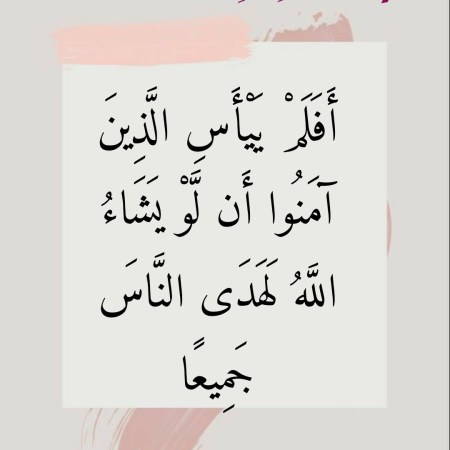 أَفَلَمْ يَيْأَسِ الَّذِينَ
آمَنُوا أَن لَّوْ يَشَاءُ
اللَّهُ لَهَدَى النَّاسَ
جَمِيعًا